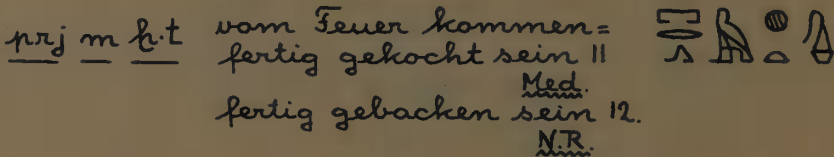 prj m ḫ.t vom Feuer kommen= 𓉐𓂋𓂻𓅓𓐍𓏏𓊮
fertig gekocht sein 11
Med.
fertig gebacken sein 12.
N.R.